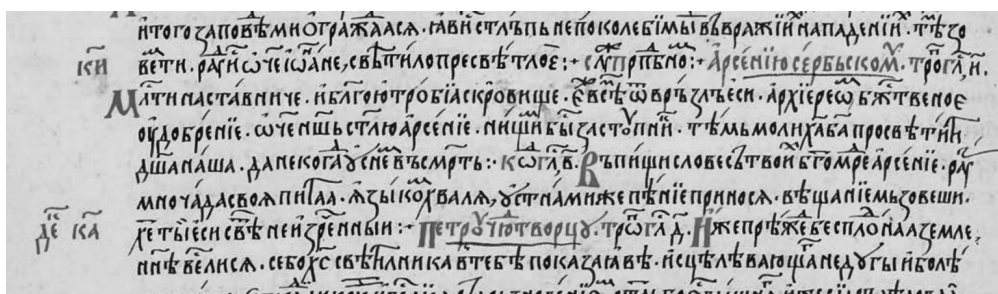 и҆того заповѣми ѡ҆гражⷣаѧсѧ. ꙗ҆ви стлъпь непоколебимы въвражїихъ нападенїи. тⷨѣ зо
к҃и вети. раⷣуи ѡ҆ч҃е і҆ѡа҆не, свѣтило пресвѣтлое :· слⷤу прпⷣбномⷹ :· арсенїю сербьскомⷹ. троⷫ гла, и҃.
Млⷭти наставниче. и҆ бл҃гоютробїа скровище. ѿ връзлъ еси. а҆рхїереѡⷨ бж҃твеное
оудобренїе. ѡ҆ч҃е нш҃ь ст҃лю а҆рсенїе. нищиⷨ бы заступниⷦ. тѣмь моли х҃а б҃а просвѣтити
дш҃а наша. да некогда уснеⷨ въ смр҃ть :· коⷣ гла, в҃. Въ пищи словесъ твоиⷯ бг҃омⷣре арсенїе. раⷣу
мно чада своя питаа. ꙗ҆зыкоⷨ хвалѧ, устнами же пѣнїе приносѧ. вѣщанїемь зовеши.
де҃ к҃а хе҃ ты еси свѣⷮ неизреⷱнныи :· Петру чютворцу. троⷫ гла д҃. Иже прѣжде бесплоднаа земле,
нн҃ѣ веселисѧ. себо х҃с свѣтилника в тебѣ показа ꙗ҆вѣ. исцѣлѣвающа недугы и болѣ